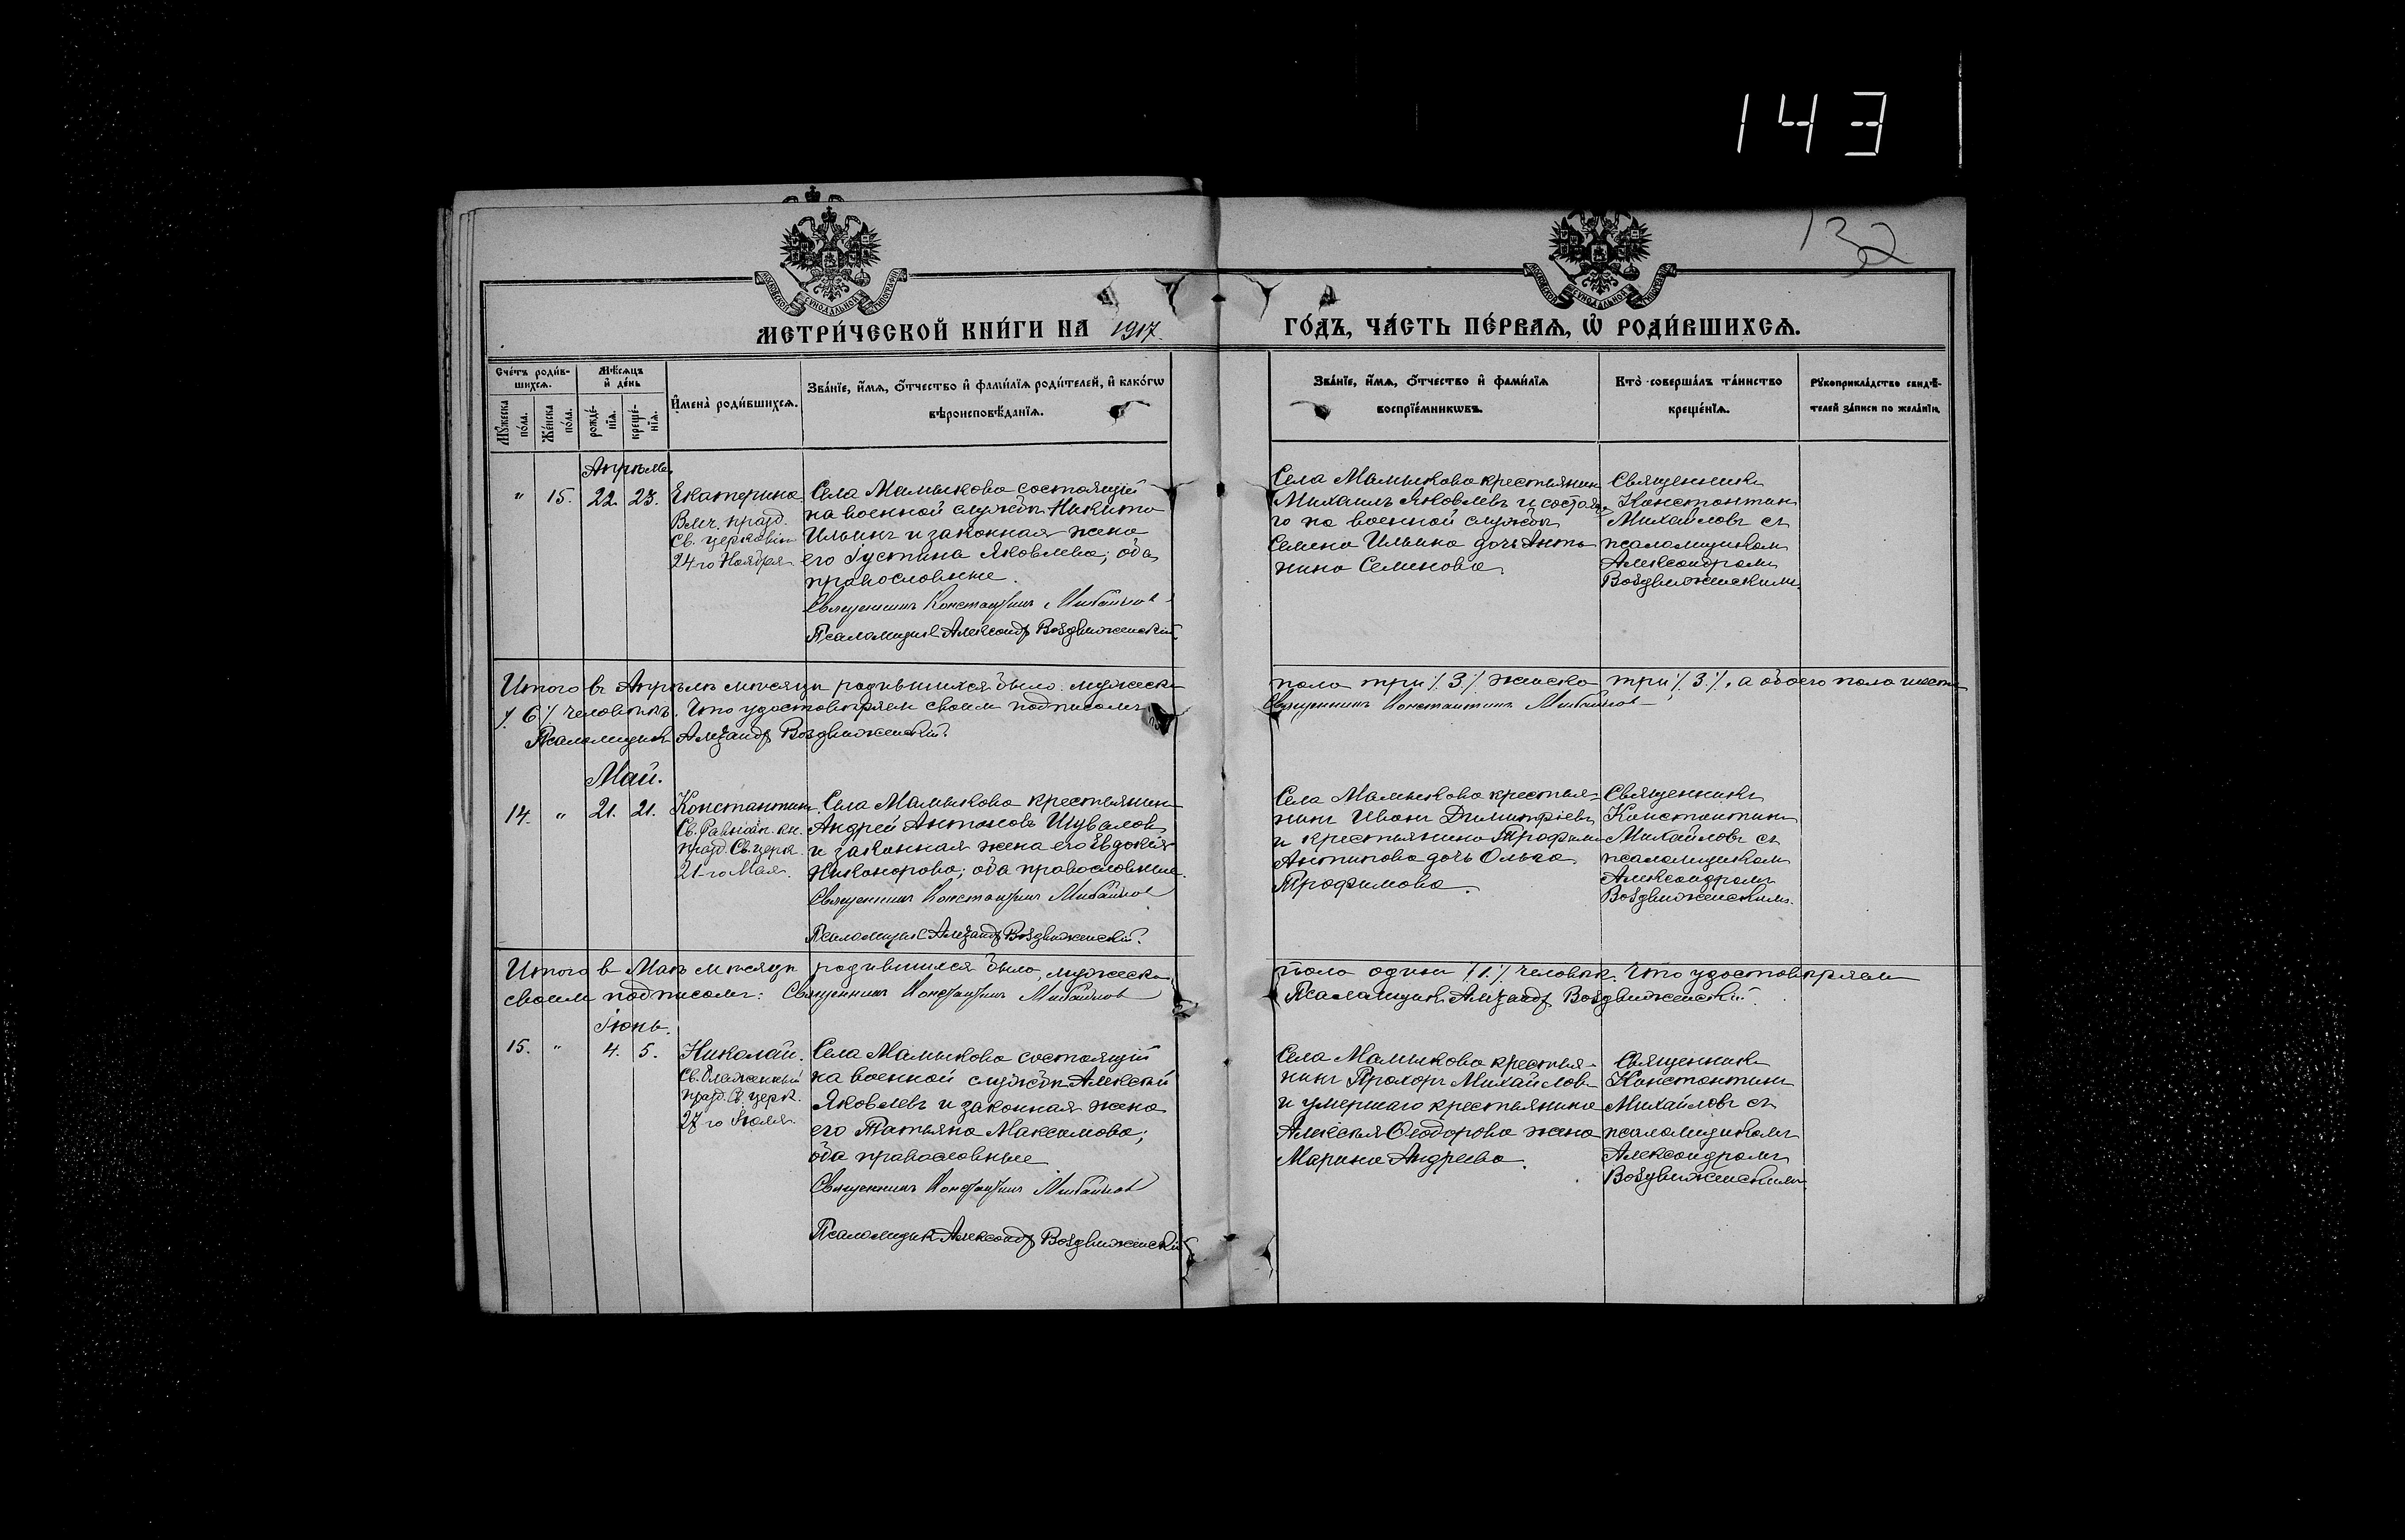 143
132
МЕТРИ́ЧЕСКОЙ КНИ́ГИ НА 1917. ГО́ДЪ, ЧА́СТЬ ПЕ́РВАѦ, Ѡ҆ РОДИ́ВШИХСѦ.
Сче́тъ роди́в-
шихсѧ.
Мѣ́сѧцъ
и҆ де́нь
Мꙋ́жеска
по́ла.
Же́нска
по́ла.
рожде́-
нїѧ.
креще́-
нїѧ.
И҆мена̀ роди́вшихсѧ.
Зва́нїе, и҆́мѧ, ѻ҆́тчество и҆ фами́лїѧ роди́телей, и҆ како́гѡ
вѣроисповѣ́данїѧ.
Зва́нїе, и҆́мѧ, ѻ҆́тчество и҆ фами́лїѧ
воспрїе́мникѡвъ.
Кто̀ соверша́лъ та́инство
креще́нїѧ.
Рꙋкоприкла́дство свидѣ́-
телей за́писи по жела́нїю.
Апрѣль.
" 15. 22. 23.
Екатерина
Влмч. празд.
Св. церковію
24-го Ноября.
Села Мамыково состоящій
на военной службѣ Никита
Ильинъ и законная жена
его Іустина Яковлева; оба
православные.
Священникъ Константинъ Михайлов
Псаломщик Александр Воздвиженскій
Села Мамыково крестьянин
Михаилъ Яковлевъ и состоящ.
го на военной службѣ
Семена Ильина дочь Анто
нина Семенова.
Священникъ
Константин
Михайловъ съ
псаломщиком
Александромъ
Воздвиженскимъ.
Итого въ Апрѣлѣ мѣсяцѣ родившихся было: мужеска пола три ٪ 3 ٪ женска три ٪ 3 ٪, а обоего пола шесть
٪ 6 ٪ человѣкъ. Что удостовѣряем своим подписомъ Священникъ Константинъ Михайлов
Псаломщик Александр Воздвиженскій.
Май.
14. " 21. 21.
Константинъ.
Св. Равноап. кн.
празд. Св. церк.
21-го Мая.
Села Мамыково крестьянин
Андрей Антонов Шувалов
и законная жена его Евдокія
Никонорова; оба православные.
Священникъ Константинъ Михайлов
Псаломщик Александр Воздвиженскій.
Села Мамыково крестья-
нинъ Иванъ Димитріевъ
и крестьянина Трофима
Антипова дочь Ольга
Трофимова.
Священникъ
Константинъ
Михайловъ съ
псаломщиком
Александромъ
Воздвиженскимъ.
Итого в Маѣ мѣсяцѣ родившихся было, мужеска пола один ٪ 1. ٪ человѣкъ. Что удостовѣряем
своим подписомъ: Священникъ Константинъ Михайлов Псаломщик Александр Воздвиженскій.
Іюнь.
15. " 4. 5.
Николай.
Св. блаженный
празд. Св. церк.
27-го Іюля.
Села Мамыково состоящій
на военной службѣ Алексѣй
Яковлевъ и законная жена
его Татьяна Максимова;
оба православные
Священникъ Константинъ Михайлов
Псаломщик Александр Воздвиженскій
Села Мамыково крестья-
нинъ Прохоръ Михайлов
и умершаго крестьянина
Алексѣя Ѳеодорова жена
Марина Андреева.
Священникъ
Константинъ
Михайловъ съ
псаломщикомъ
Александромъ
Воздвиженскимъ